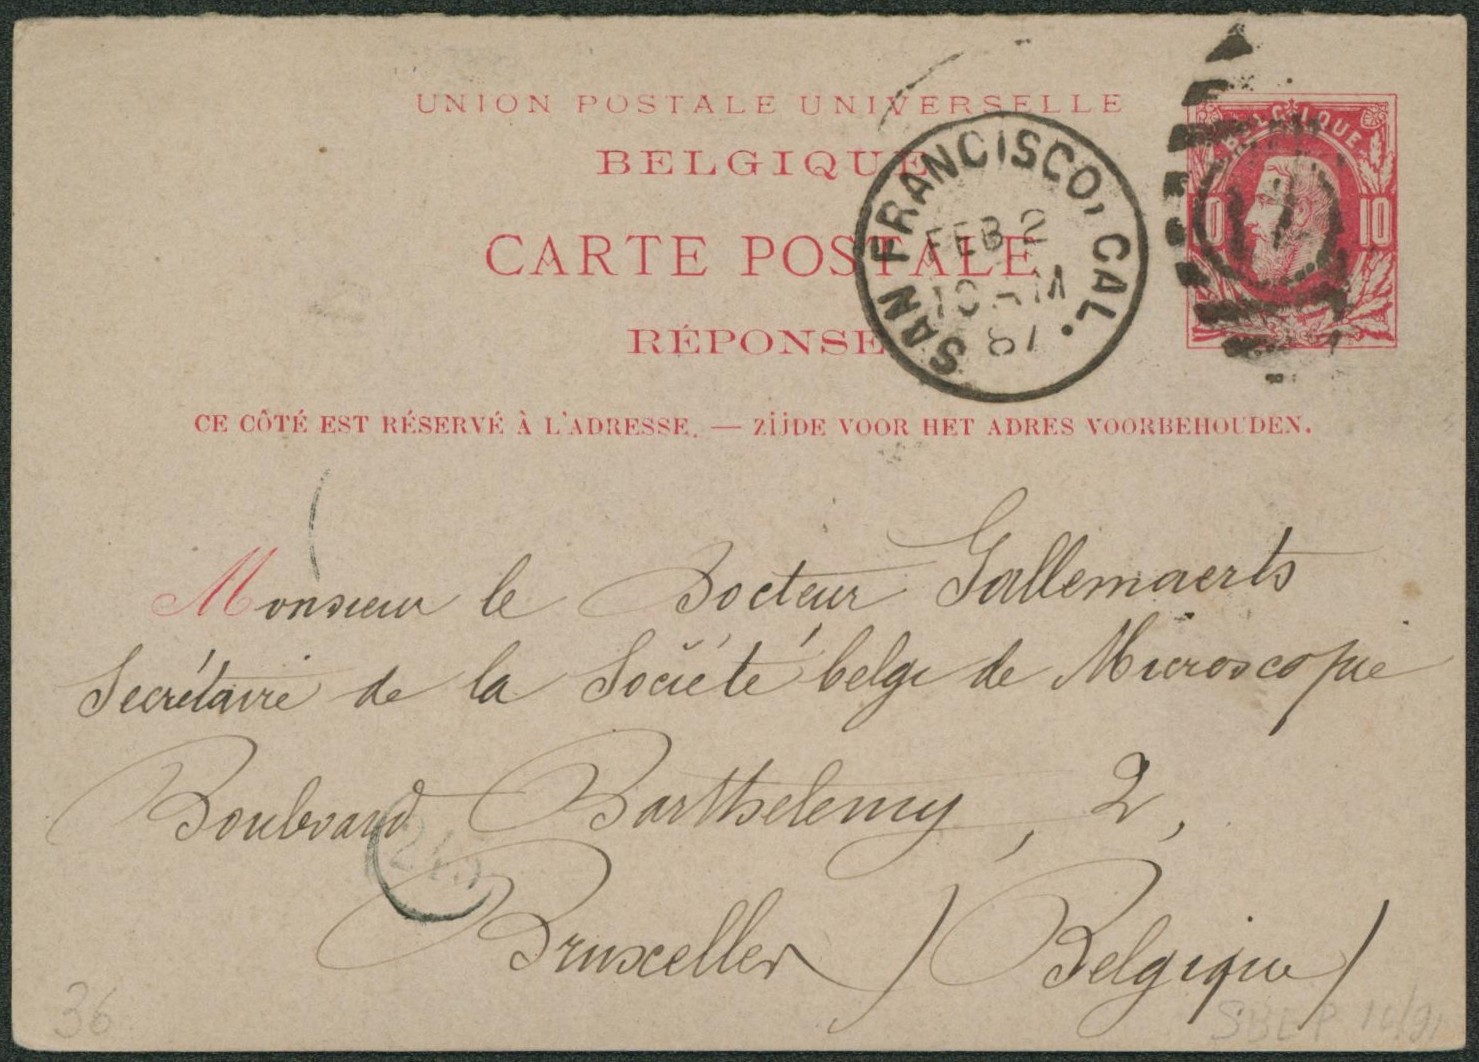 UNION POSTALE UNIVERSELLE
BELGIQUE
CARTE POSTALE
RÉPONSE
CE CÔTÉ EST RÉSERVÉ À L'ADRESSE. — ZIJDE VOOR HET ADRES VOORBEHOUDEN.
BELGIQUE
10 10
SAN FRANCISCO, CAL.
FEB 2
10 AM
87
Monsieur le Docteur Gallemaerts
Secrétaire de la Société belge de Microscopie
Boulevard Barthelemy, 2,
245
Bruxelles (Belgique)
36